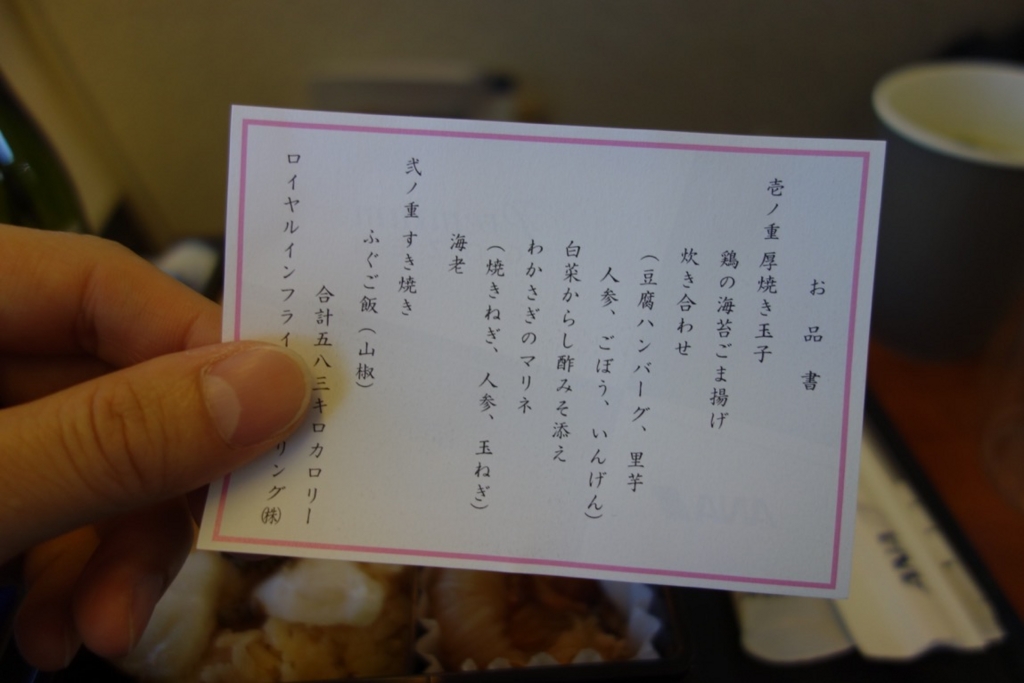 お品書
壱ノ重 厚焼き玉子
鶏の海苔ごま揚げ
炊き合わせ
（豆腐ハンバーグ、里芋
人参、ごぼう、いんげん）
白菜からし酢みそ添え
わかさぎのマリネ
（焼きねぎ、人参、玉ねぎ）
海老
弐ノ重 すき焼き
ふぐご飯（山椒）
合計五八三キロカロリー
ロイヤルインフライ リング㈱
ANA